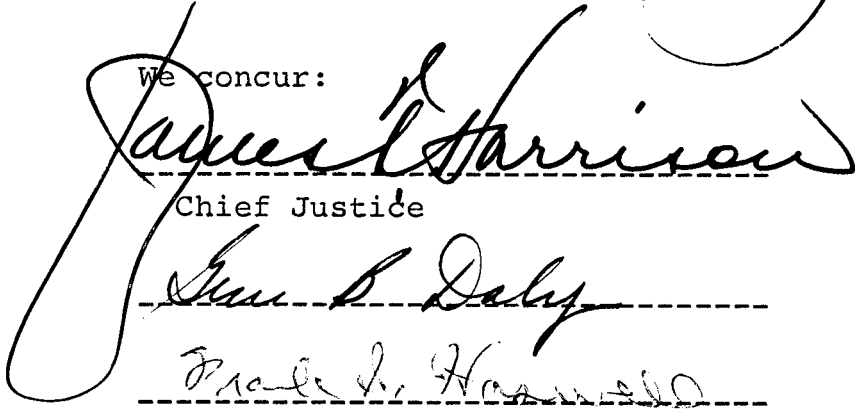 We concur:
James T. Harrison
Chief Justice
Gene B Daly
Frank I. Haswell